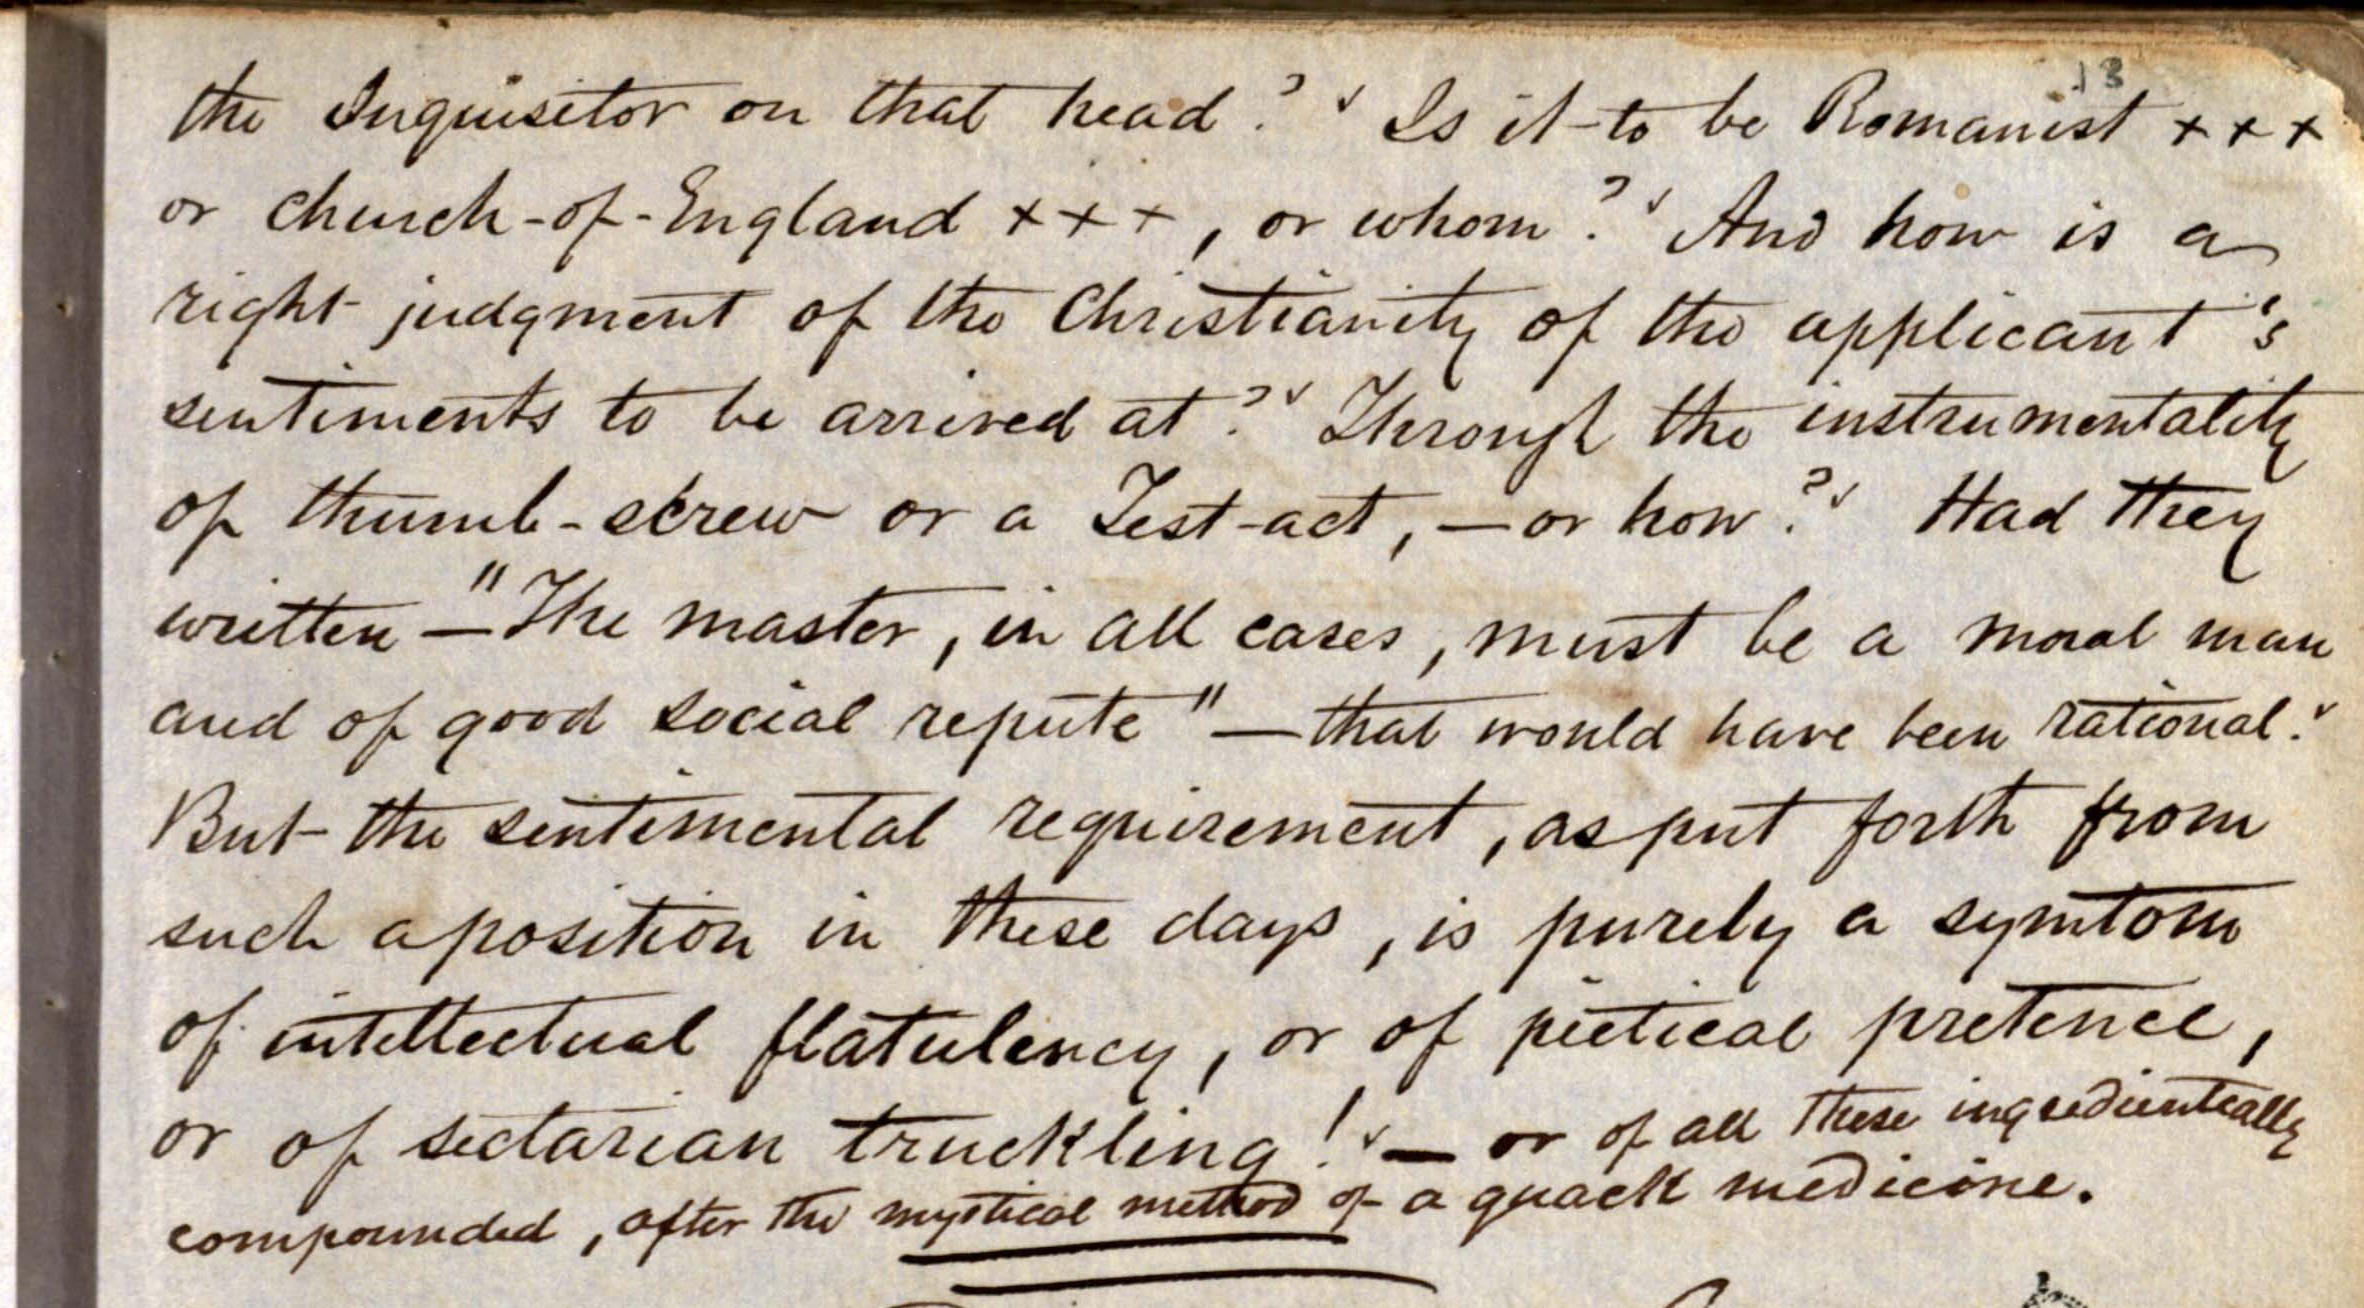 13
the Inquisitor on that head? Is it to be Romanist + + +
or church-of-England + + +, or whom? And how is a
right judgment of the Christianity of the applicant's
sentiments to be arrived at? Through the instrumentality
of thumb-screw or a Test-act, — or how? Had they
written — "The master, in all cases, must be a moral man
and of good social repute" — that would have been rational.
But the sentimental requirement, as put forth from
such a position in these days, is purely a symtom
of intellectual flatulency, or of pietical pretence,
or of sectarian truckling! — or of all these ingredientially
compounded, after the mystical method of a quack medicine.